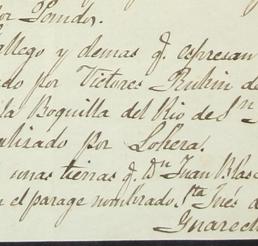 por Pomdor.
allego y demas q. espresan
do por Victores Rubin de
la Boquilla del Rio de Sn
alizado por Lohera.
unas tierras q. Dn Juan Blas
n el parage nombrado Sta Inés d
Guarech